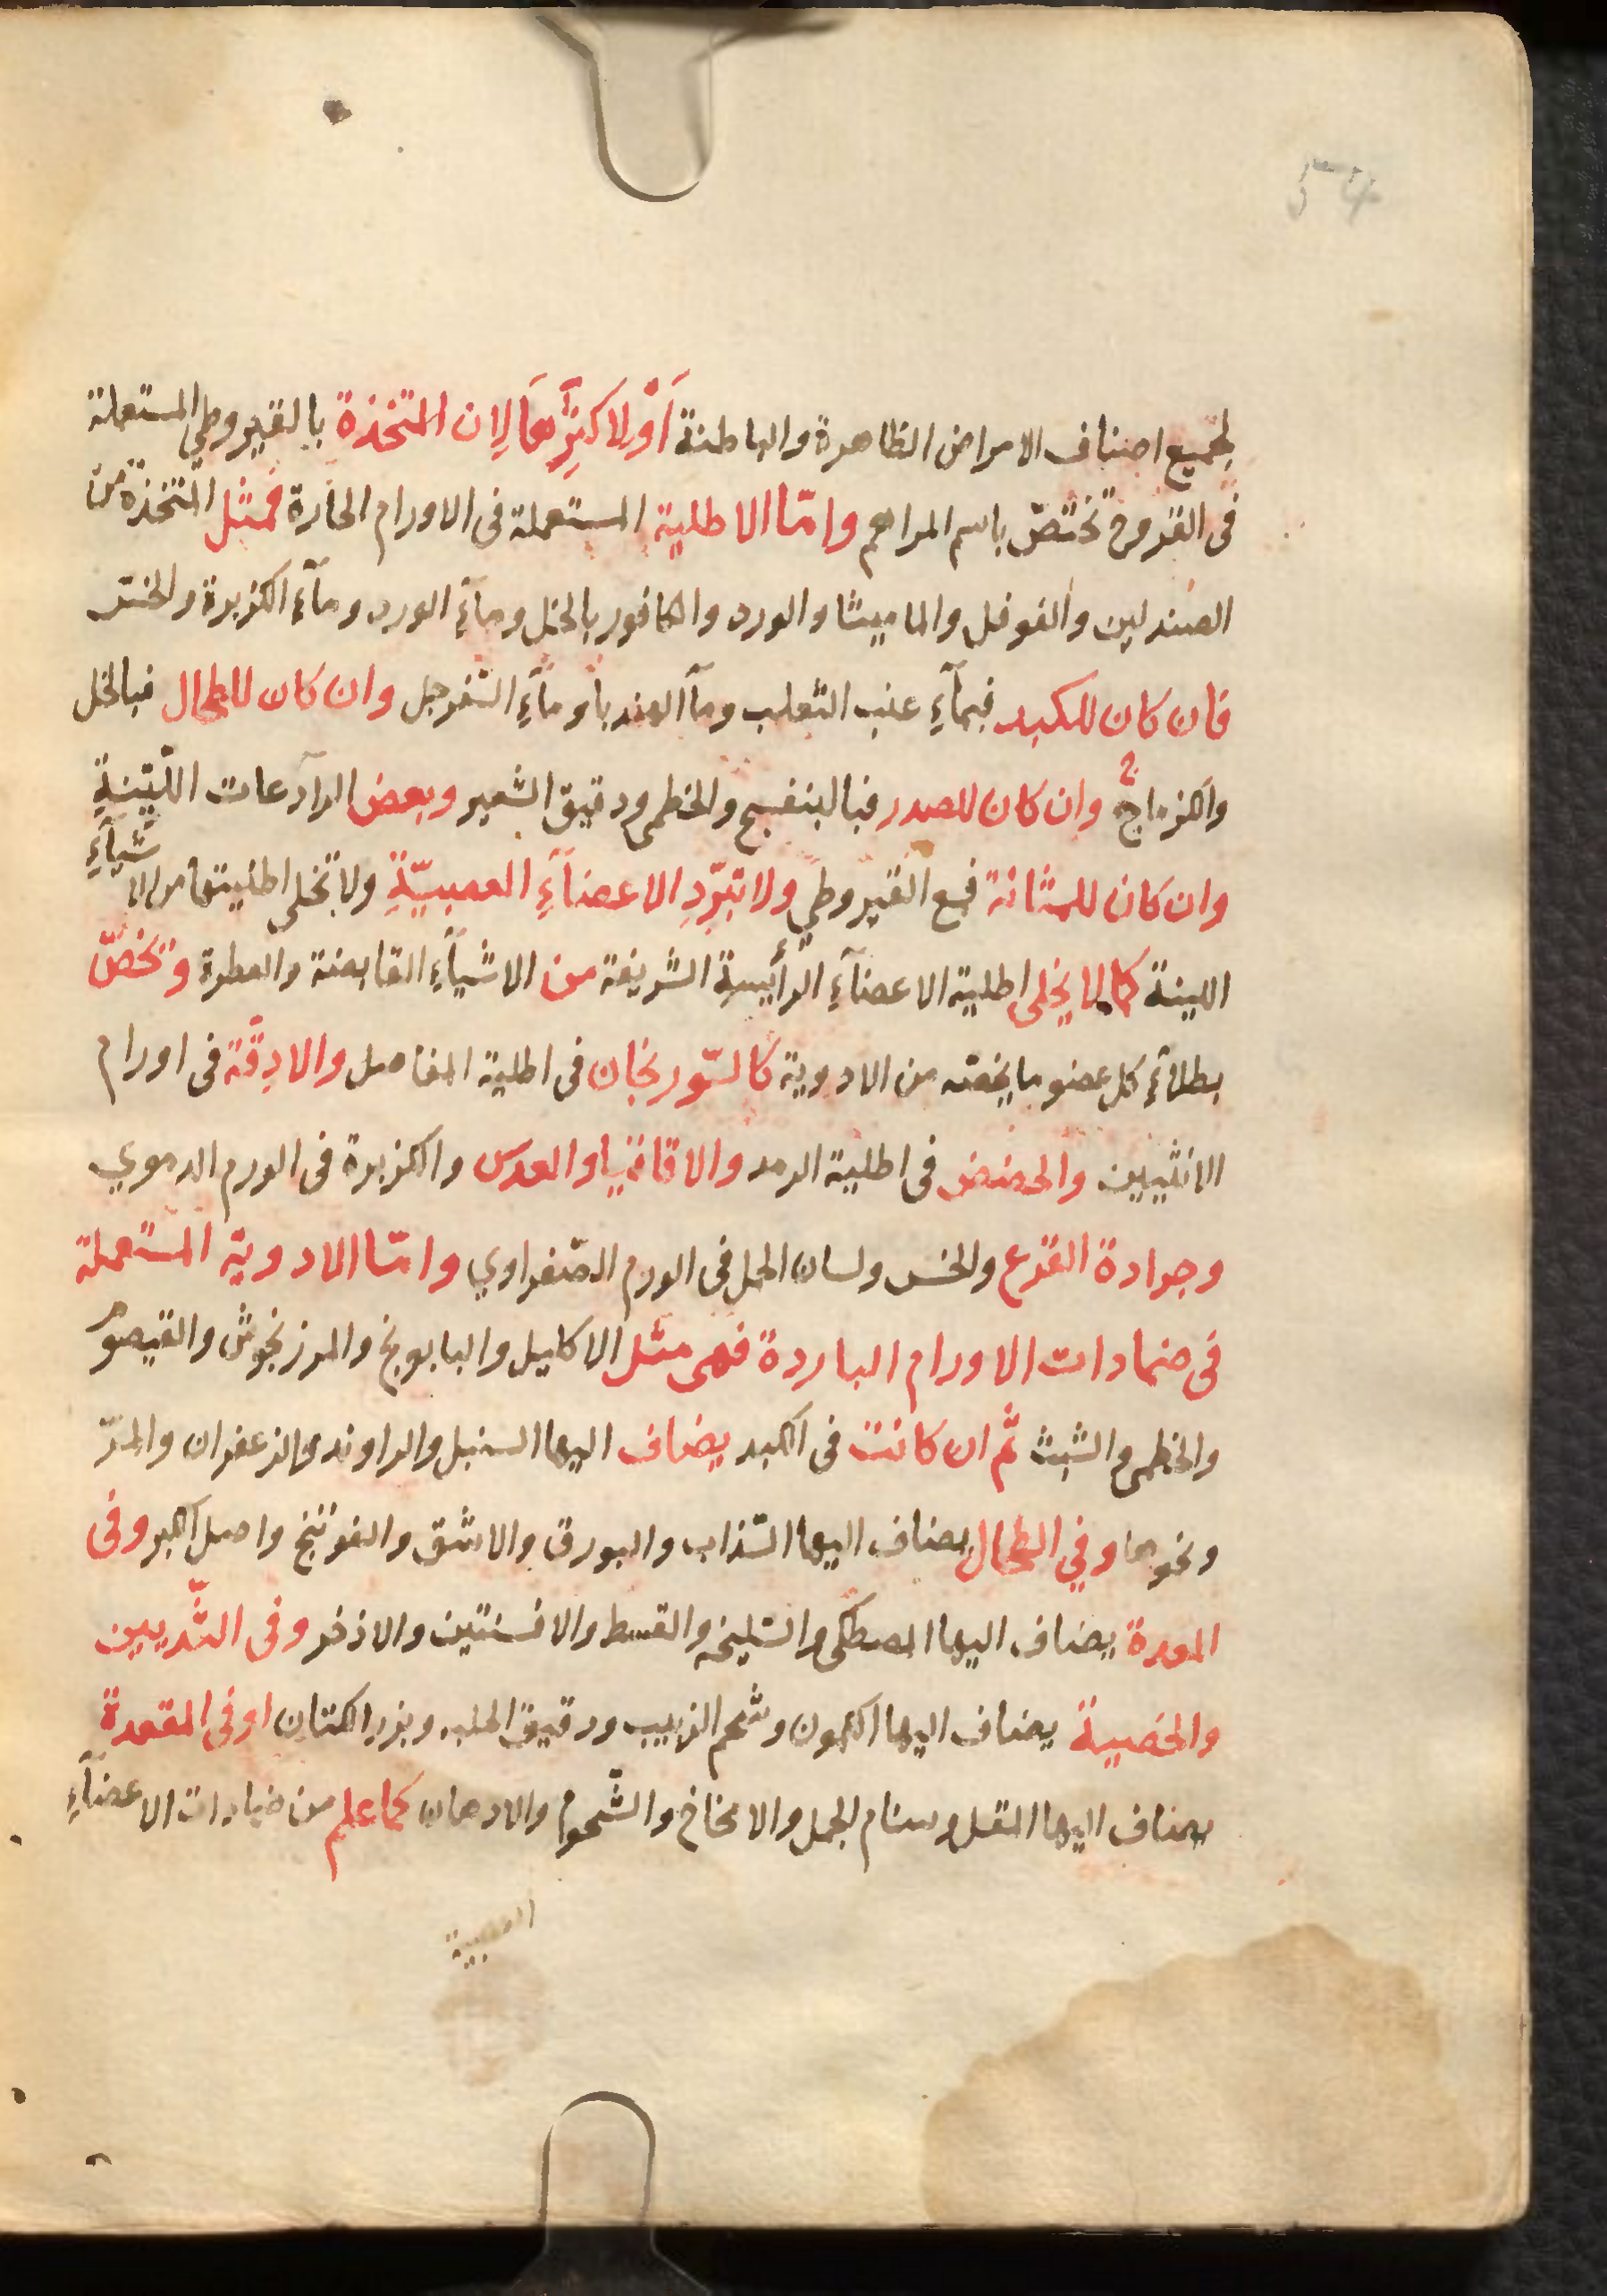 54
لجميع اصناف الامراض الظاهرة والباطنة أوْ لاكثرِها لان المتخذة بالقيروطي المستعملة
فى القروح تختصّ باسم المراهم وامّا الاطلية المستعملة فى الاورام الحارة فمثل المتخذة من
الصندلين والفوفل والماميثا والورد والكافور بالخل ومآءِ الورد ومآءِ الكزبرة والخس
فان كان للكبد فبمآءِ عنب الثعلب ومآ الهندبا ومآءِ السّفرجل وان كان للطحال فبالخل
والكزماج وان كان للصدر فبالبنفسج والخطمى ودقيق الشعير وبعض الرآدعات الليّنةِ
وان كان للمثانة فمع القيروطي ولا تبرّدِ الاعضآءِ العصبيّةِ ولا تخلى اطليتها من الاشيآءِ
اللينة كما لا يخلى اطلية الاعضآءِ الرّئيسةِ الشريفة من الاشيآءِ القابضة والعطرة وتخصّ
بطلآءِ كل عضو ما يخصّه من الادوية كالسّورنجان فى اطلية المفاصل والادقّة فى اورام
الانثيين والحضض فى اطلية الرمد والاقاقيا والعدس والكزبرة فى الورم الدموي
وجرادة القرع والخس ولسان الحمل فى الورم الصّفراوي وامّا الادوية المستعملة
فى ضمادات الاورام الباردة فهى مثل الاكليل والبابونج والمرزنجوش والقيصوم
والخطمى والشبث ثمّ ان كانت فى الكبد يضاف اليها السنبل والراوند والزعفران والمرّ
ونحوها وفي الطحال يضاف اليها السّذاب والبورق والاشق والفوتنج واصل الكبر وفى
المعدة يضاف اليها المصطكى والسّليخه والقسط والافسنتين والاذخر وفى الثّديين
والخصية يضاف اليها الكمون وشحم الزبيب ودقيق الحلبه وبزر الكتان او فى المقعدة
يضاف اليها المقل وسنام الجمل والامخاخ والشّحوم والادهان كما علم من ضمادات الاعضآءِ
العصبية